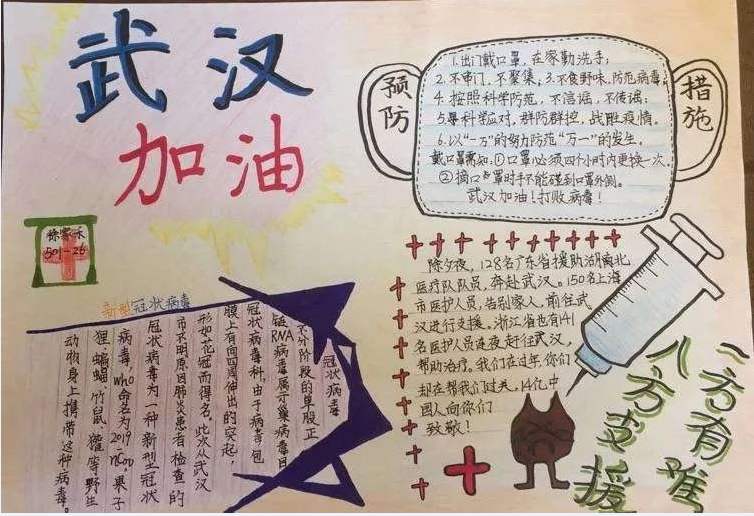 武汉
加油
501-26
预防
措施
1.出门戴口罩,在家勤洗手;
2.不串门,不聚集,3.不食野味,防范病毒;
4.按照科学防范,不信谣,不传谣;
5.科学应对,群防群控,战胜疫情。
6.以“一万”的努力防范“万一”的发生。
戴口罩需知:①口罩必须四个小时内更换一次
②摘口罩时手不能碰到口罩外侧。
武汉加油!打败病毒!
新型冠状病毒
冠状病毒
不分阶段的单股正
链RNA病毒属于巢病毒目
冠状病毒科,由于病毒包
膜上有向四周伸出的突起,
形如花冠而得名。此次从武汉
市不明原因肺炎患者检查的
冠状病毒为一种新型冠状
病毒,who命名为2019-nCoV果子
狸、蝙蝠、竹鼠、獾等野生
动物身上携带这种病毒。
除夕夜,128名广东省援助湖北
医疗队队员,奔赴武汉。150名上海
市医护人员,告别家人,前往武
汉进行支援。浙江省也有141
名医护人员连夜赶往武汉,
帮助治疗。我们在过年,你们
却在帮我们过关,14亿中
国人向你们
致敬!
一方有难
八方支援